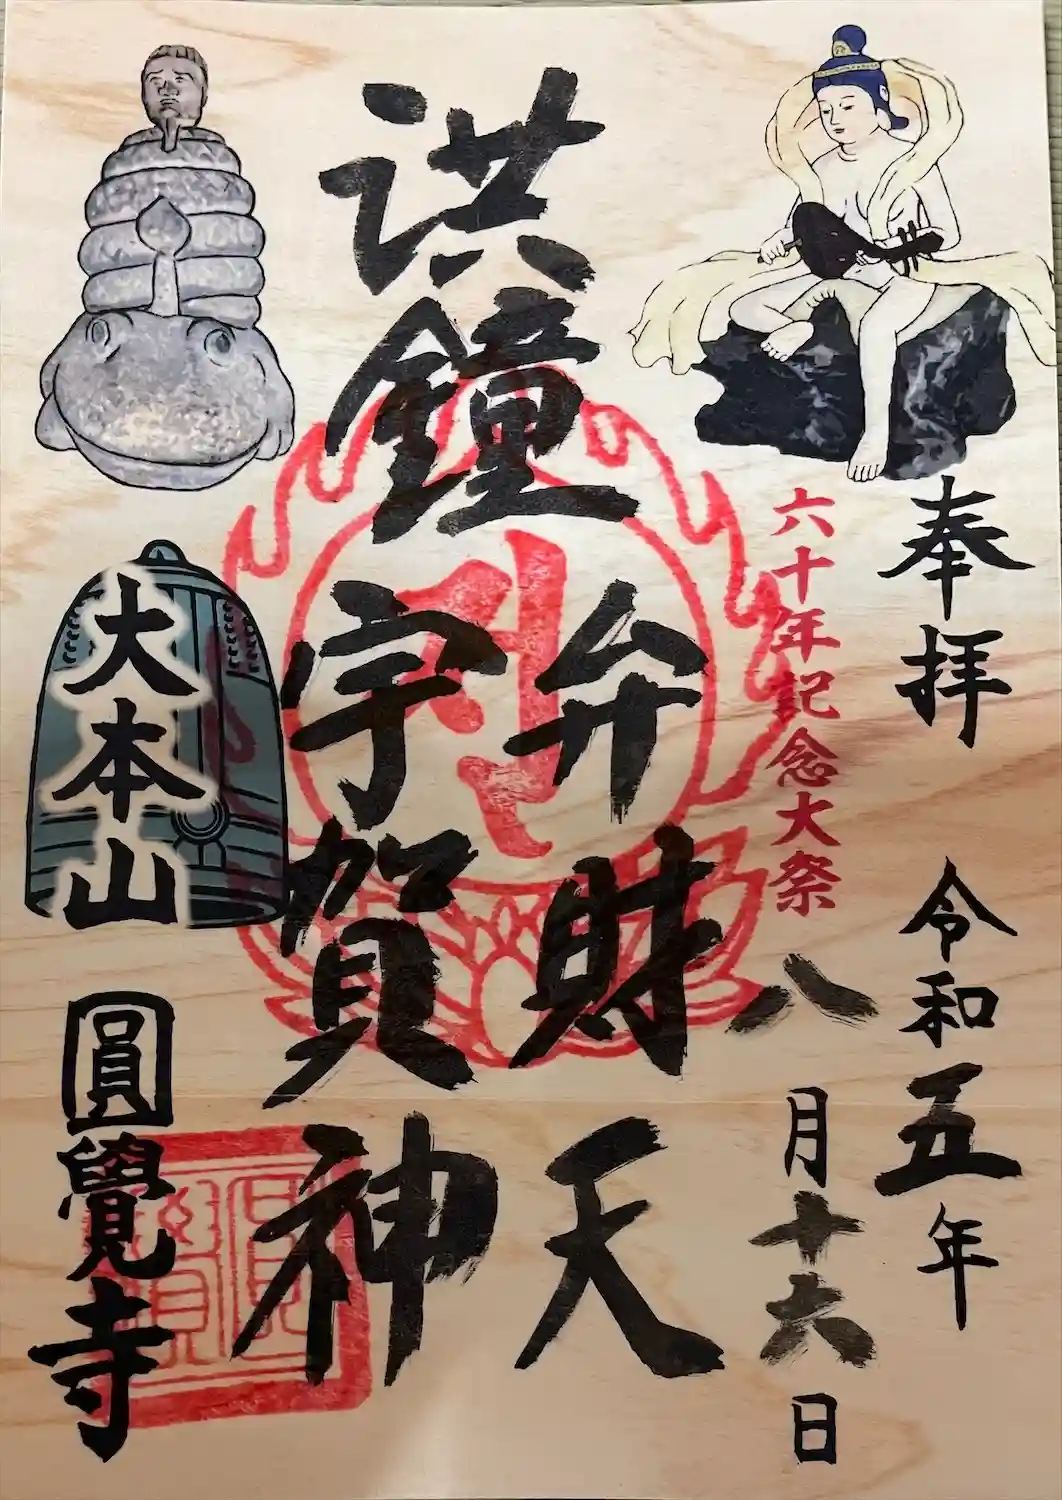 奉拝
令和五年
八月十六日
六十年記念大祭
洪鐘
弁財天
宇賀神
大本山
圓覺寺